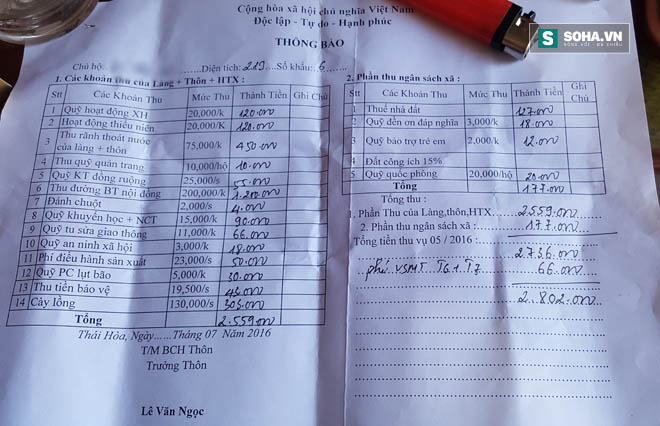 Cộng hòa xã hội chủ nghĩa Việt Nam
Độc lập - Tự do - Hạnh phúc
SOHA.VN
THÔNG BÁO
Chủ hộ: Diện tích: 219 Số khẩu: 6
1. Các khoản thu của Làng + Thôn + HTX :
Stt Các Khoản Thu Mức Thu Thành Tiền Ghi Chú
1 Quỹ hoạt động XH 20,000/k 120.000
2 Hoạt động thiếu niên 20,000/K 120.000
3 Thu rãnh thoát nước của làng + thôn 75,000/k 450.000
4 Thu quỹ quân trang 10,000/hộ 10.000
5 Quỹ KT đồng ruộng 25,000/s 55.000
6 Thu đường BT nội đồng 200,000/k 1.200.000
7 Đánh chuột 2,000/s 4.000
8 Quỹ khuyến học + NCT 15,000/k 90.000
9 Quỹ tu sửa giao thông 11,000/k 66.000
10 Quỹ an ninh xã hội 3,000/k 18.000
11 Phí điều hành sản xuất 23,000/s 50.000
12 Quỹ PC lụt bão 5,000/k 30.000
13 Thu tiền bảo vệ 19,500/s 43.000
14 Cây lồng 130,000/s 303.000
Tổng 2.559.000
Thái Hòa, Ngày......Tháng 07 Năm 2016
T/M BCH Thôn
Trưởng Thôn
Lê Văn Ngọc
2. Phần thu ngân sách xã :
Stt Các Khoản Thu Mức Thu Thành Tiền Ghi Chú
1 Thuế nhà đất 127.000
2 Quỹ đền ơn đáp nghĩa 3,000/k 18.000
3 Quỹ bảo trợ trẻ em 2,000/k 12.000
4 Đất công ích 15%
5 Quỹ quốc phòng 20,000/hộ 20.000
Tổng 177.000
Tổng thu :
1. Phần Thu của Làng,thôn,HTX. 2559.000
2. Phần thu ngân sách xã : 177.000
Tổng tiền thu vụ 05 / 2016 : 2736.000
phí VSMT T6 1 T7 66.000
2.802.000